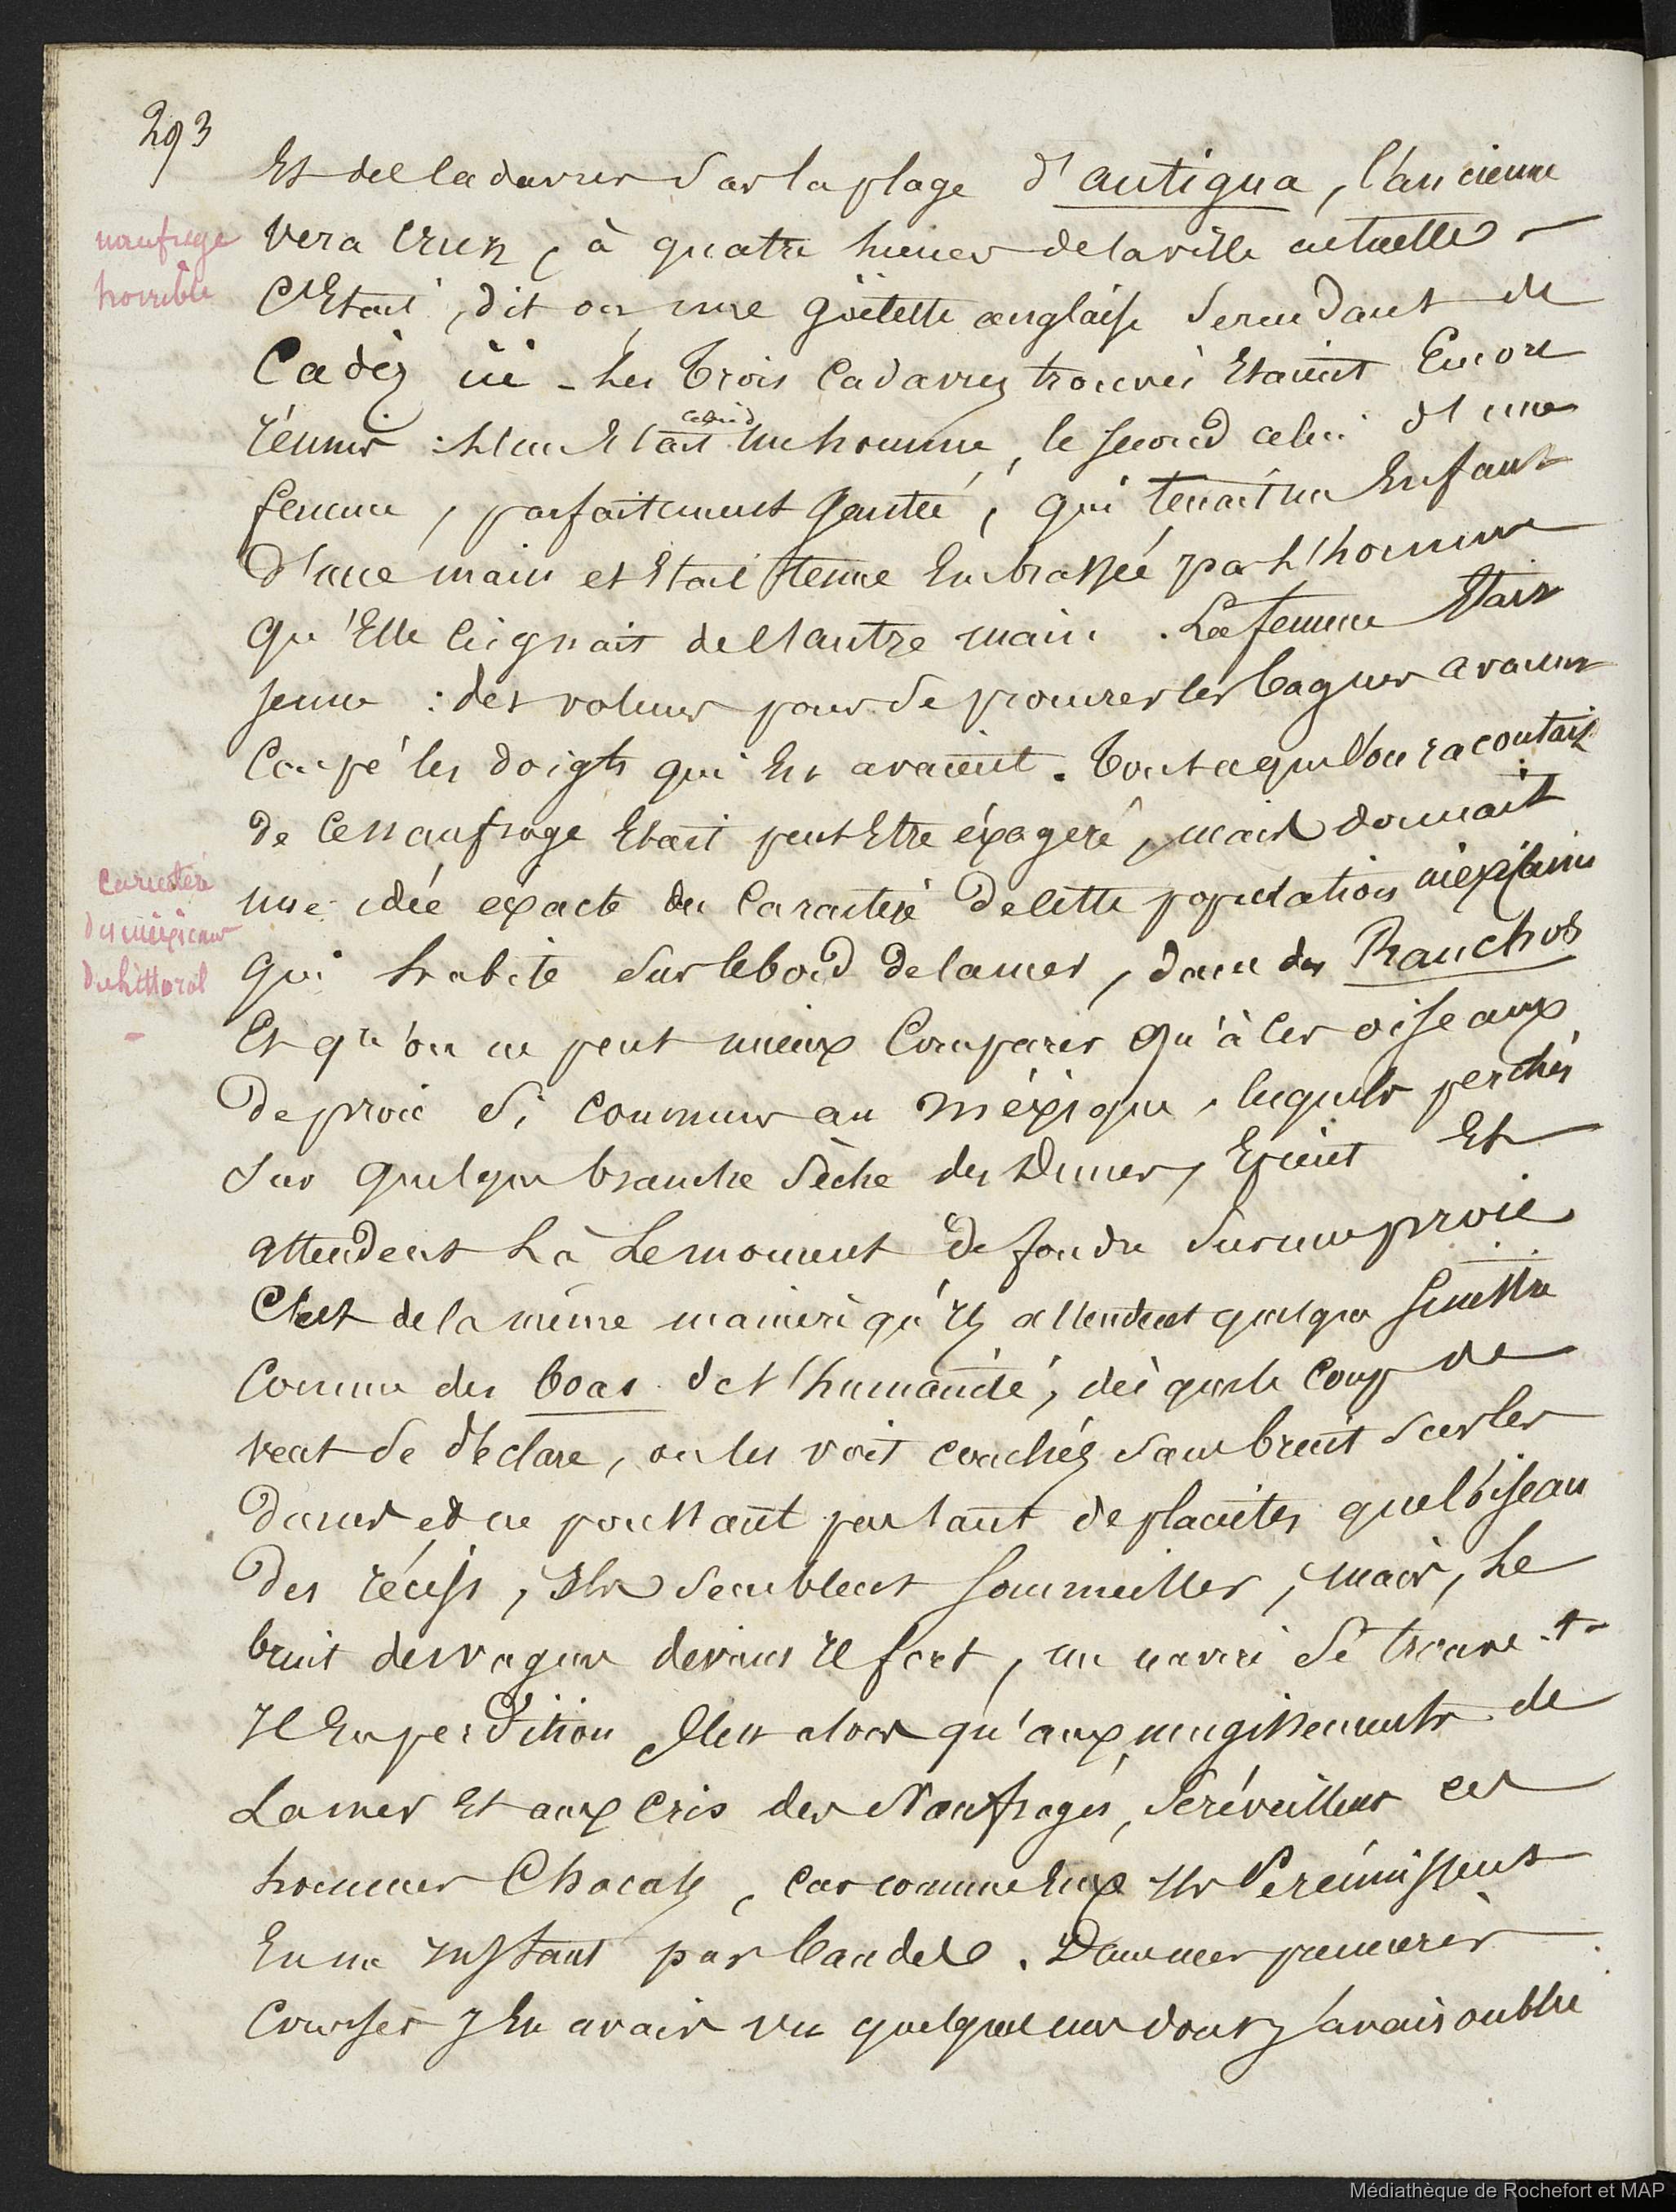 293
Et des cadavres sur la plage d'antigua, l'ancienne
naufrage
horrible
vera cruz, à quatre lieues de la ville actuelle -
C'Etait, dit on, une goëlette anglaise se rendant de
Cadiz ici - Les trois Cadavres trouvés Etaient Encore
réunis : l'un Etait celui d'un homme, le second celui d'une
femme, parfaitement gantée, qui tenait un Enfant
d'une main et Etait tenue Embrassée par l'homme
qu'Elle ceignait de l'autre main. La femme Etait
jeune : des voleurs pour se procurer les bagues avaient
Coupé les doigts qui En avaient. Tout ce que l'on racontait
de Ce naufrage Etait peut Etre éxagéré, mais donnait
une idée exacte du Caractère de cette population mexicaine
caractère
des mexicains
du littoral
-
qui habite sur le bord de la mer, dans des Ranchos
Et qu'on ne peut mieux Comparer qu'à Ces oiseaux
de proie si communs au méxique, lesquels perchés
sur quelque branche sèche des Dunes, Epient Et
attendent Là Le moment de fondre sur une proie
C'est de la même manière qu'ils attendent quelque sinistre
Comme des boas de l'humanité, dès que le Coup de
vent se déclare, on les voit couchés sans bruit sur les
dunes et ne poussant pas tant de plaintes que l'oiseau
des récifs, Ils semblent sommeiller, mais, Le
bruit des vagues devient il fort, un navire se trouve-t-
Il En perdition C'est alors qu'aux mugissements de
La mer Et aux cris des Naufragés, se réveillent ces
hommes Chacals, car comme Eux Ils se réunissent
En un Instant par bandes. Dans mes premières
Courses J'En avais vu quelques uns dont j'avais oublié
Médiathèque de Rochefort et MAP